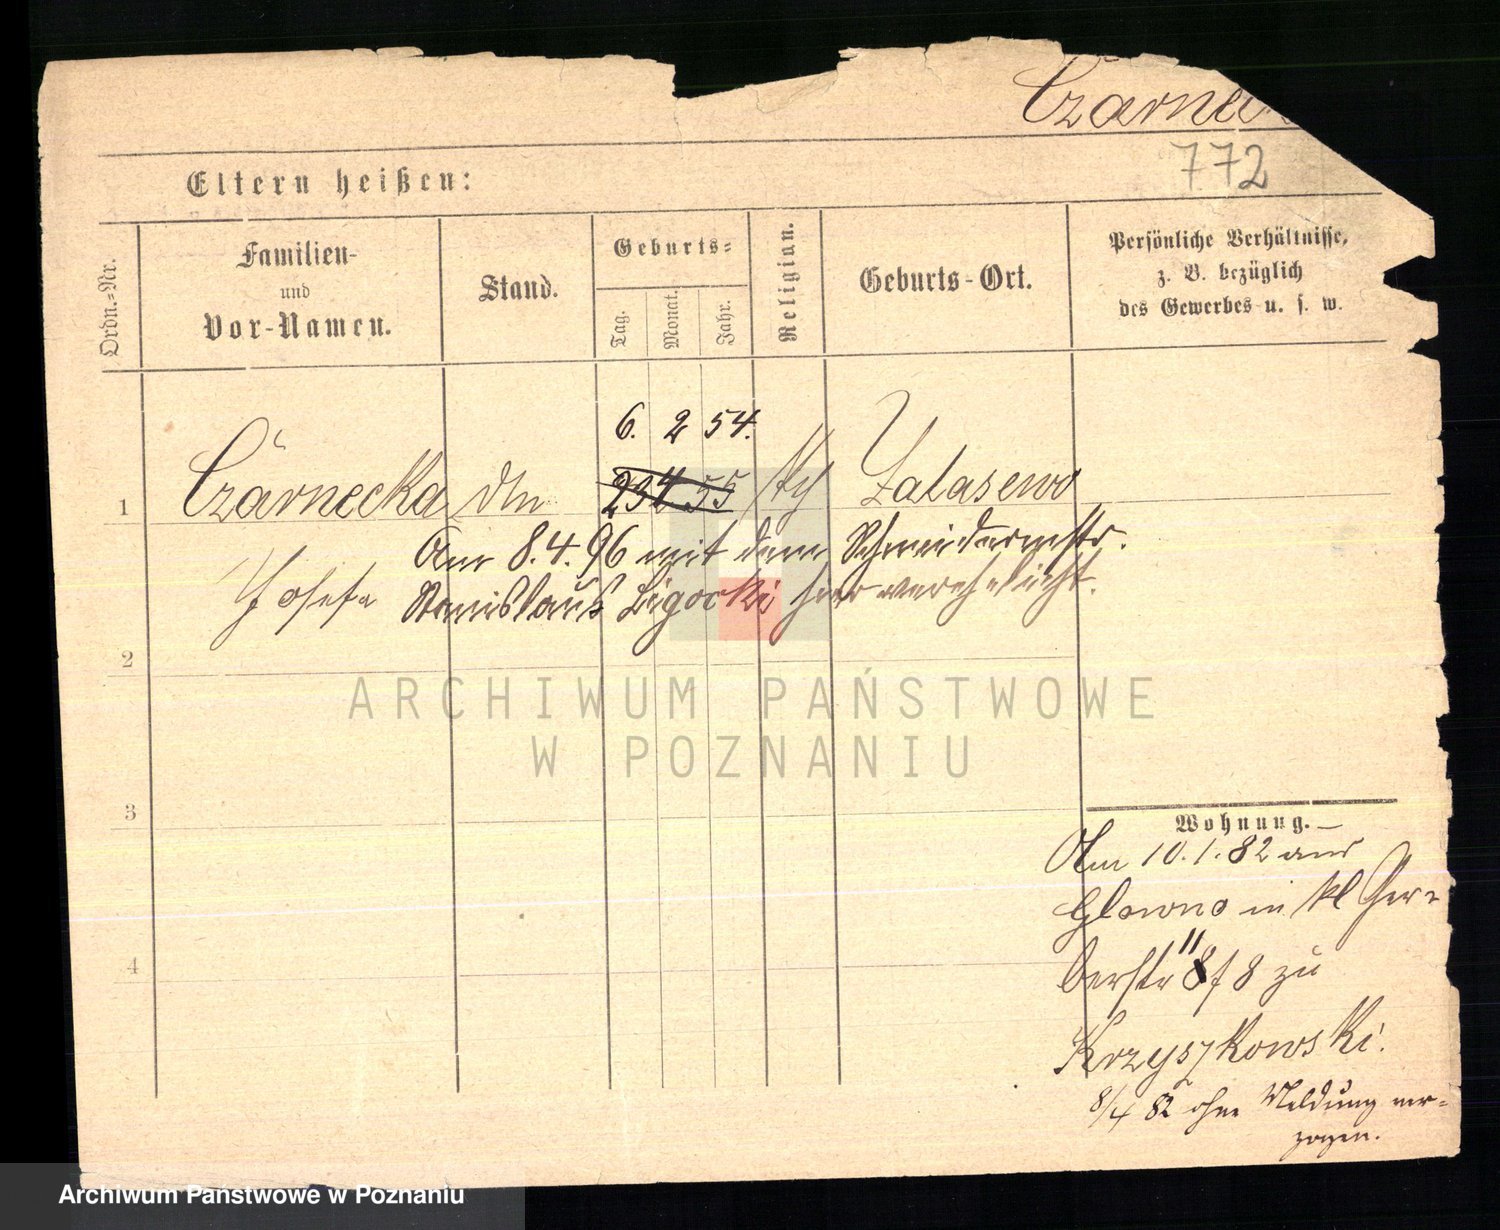 Czarneck
772
Eltern heißen:
Ordn.-Nr.
Familien-
und
Vor-Namen.
Stand.
Geburts-
Tag.
Monat.
Jahr.
Religian.
Geburts-Ort.
Persönliche Verhältnisse,
z. B. bezüglich
des Gewerbes u. s. w.
6. 2 54.
1 Czarnecka 23 4 55 Zalasewo
Am 8.4.96 mit dem Schneidermstr.
Josefa Stanislaus Ligocki hier verehelicht.
2
ARCHIWUM PAŃSTWOWE
W POZNANIU
3
Wohnung.
Am 10.1.82 aus
Glowno in kl Ger-
berstr 11 8 zu
4
Krzyszkowski.
8/4 82 ohne Meldung ver-
zogen.
Archiwum Państwowe w Poznaniu